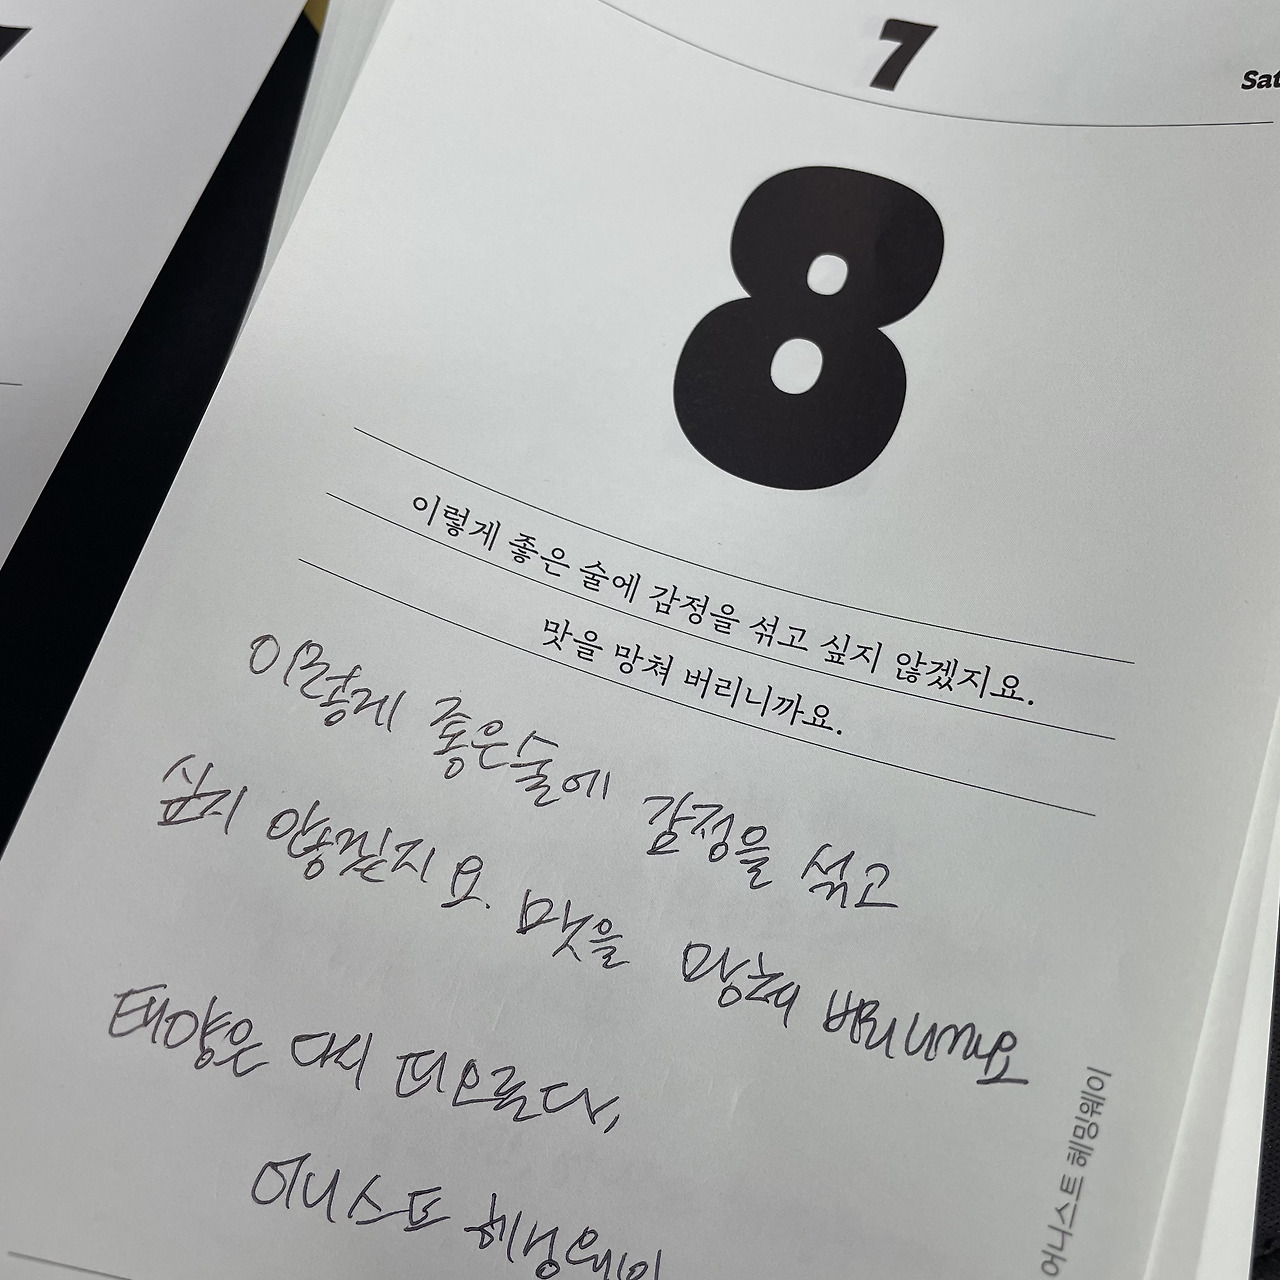 7
7
Sat
8
이렇게 좋은 술에 감정을 섞고 싶지 않겠지요.
맛을 망쳐 버리니까요.
이렇게 좋은술에 감정을 섞고
싶지 않겠지요. 맛을 망쳐 버리니까요
태양은 다시 떠오른다,
어니스트 헤밍웨이
어니스트 헤밍웨이